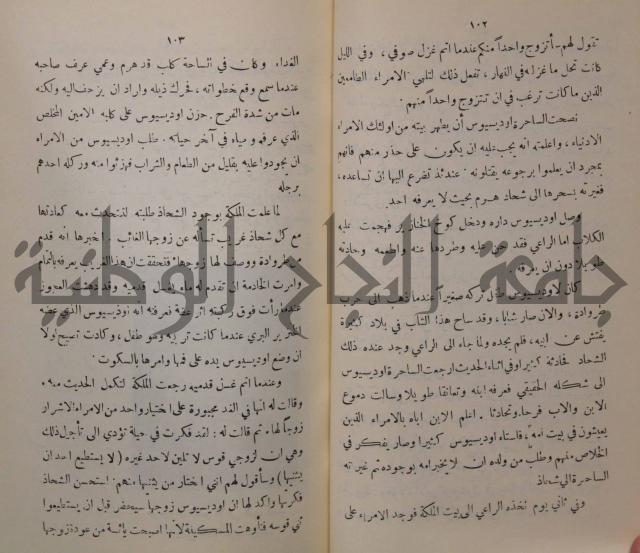 ١٠٢
تقول لهم - أتزوج واحداً منكم عندما اتم غزل صوفي ، وفي الليل
كانت تحل ما غزله في النهار ، تفعل ذلك لتلهي الامراء الطامعين
الذين ما كانت ترغب في ان تتزوج واحداً منهم .
نصحت الساحرة اوديسيوس أن يطهر بيته من اولئك الامراء
الادنياء ، واعلمته انه يجب عليه ان يكون على حذر منهم فانهم
بمجرد ان يعلموا برجوعه يقتلونه . عندئذ تضرع اليها ان تساعده ،
فغيرته بسحرها الى شحاذ هرم بحيث لا يعرفه احد .
وصل اوديسيوس داره ودخل كوخ الخنازير فهجمت عليه
الكلاب اما الراعي فقد حن عليه وطردها عنه واطعمه وحادثه
طويلا دون ان يعرفه .
كان لاوديسيوس طفل تركه صغيراً عندما ذهب الى حرب
طروادة ، والآن صار شابا ، وقد ساح هذا الشاب في بلاد كثيرة
يفتش عن ابيه ، فلم يجده ولما جاء الى الراعي وجد عنده ذلك
الشحاذ فحادثه كثيرا وفي اثناء الحديث ارجعت الساحرة اوديسيوس
الى شكله الحقيقي فعرفه ابنه وتعانقا طويلا وسالت دموع
الابن والاب فرحا وتحادثا . اعلم الابن اباه بالامراء الذين
يعيشون في بيت امه ، فاستاء اوديسيوس كثيرا وصار يفكر في
الخلاص منهم وطلب من ولده ان لا يخبر امه بوجوده ثم غيرته
الساحرة الى شحاذ
وفي ثاني يوم اخذه الراعي الى بيت الملكة فوجد الامراء على
١٠٣
الغداء وكان في الساحة كلب قد هرم وعمي عرف صاحبه
عندما سمع وقع خطواته ، فحرك ذيله واراد ان يزحف اليه ولكنه
مات من شدة الفرح . حزن اوديسيوس على كلبه الامين المخلص
الذي عرفه وحياه في آخر حياته . طلب اوديسيوس من الامراء
ان يجودوا عليه بقليل من الطعام والشراب فهزئوا منه وركله احدهم
برجله
لما علمت الملكة بوجود الشحاذ طلبته لتتحدث معه كعادتها
مع كل شحاذ غريب تسأله عن زوجها الغائب . اخبرها انه قدم
من طروادة ووصف لها زوجها فتحققت ان هذا الغريب يعرفه بالتمام
وامرت الخادمة ان تقدم له ماء لغسل قدميه وقد دهشت العجوز
عندما رأت فوق ركبته اثر عضة فعرفته انه اوديسيوس الذي عضه
الخنزير البري عندما كانت تربيه وهو طفل ، وكادت تصيح لولا
ان وضع اوديسيوس يده على فمها وامرها بالسكوت .
وعندما اتم غسل قدميه رجعت الملكة لتكمل الحديث معه
وقالت له انها في الغد مجبورة على اختيار واحد من الامراء الاشرار
زوجاً لها . ثم قالت له : لقد فكرت في حيلة تؤدي الى تأجيل ذلك
وهي ان لزوجي قوس لا تلين لاحد غيره ( لا يستطيع احد ان
يثنيها ) وسأقول لهم انني اختار من يثنيها منهم . استحسن الشحاذ
فكرتها واكد لها ان اوديسيوس زوجها سيحضر قبل ان يستطيعوا
ثني قوسه فتأوهت المسكينة لأنها اصبحت يائسة من عودة زوجها
جامعة النجاح الوطنية